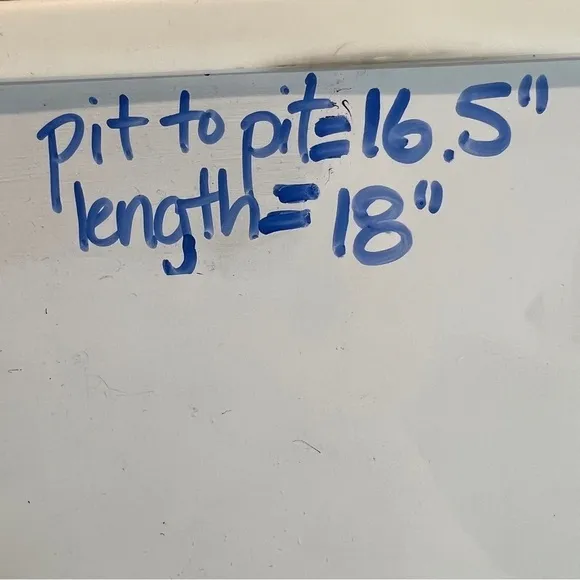 pit to pit=16.5"
length=18"